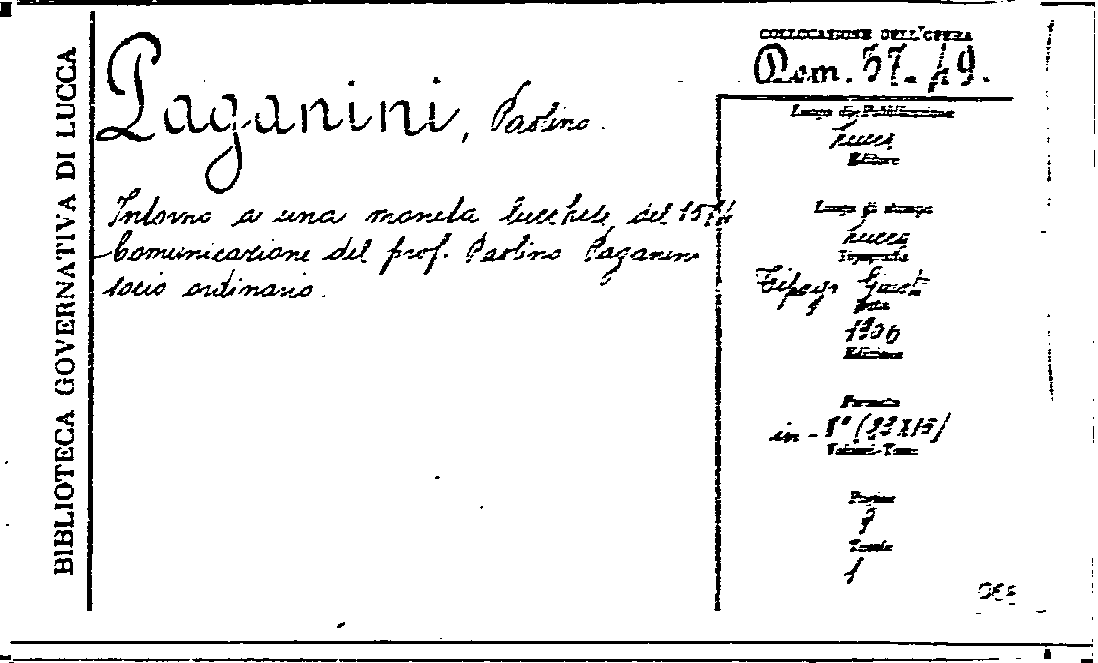 BIBLIOTECA GOVERNATIVA DI LUCCA
Paganini, Paolino.
Intorno a una moneta lucchese del
Comunicazione del prof. Paolino Paganini
socio ordinario.
COLLOCAZIONE DELL'OPERA
Dom. 37.49.
Luogo di Pubblicazione
Lucca
Editore
Luogo di stampa
Lucca
Tipografia
Tipogr. Giusti
Data
1906
Edizione
Formato
in-8°
Volumi-Tomi
Pagine
Tavole
1